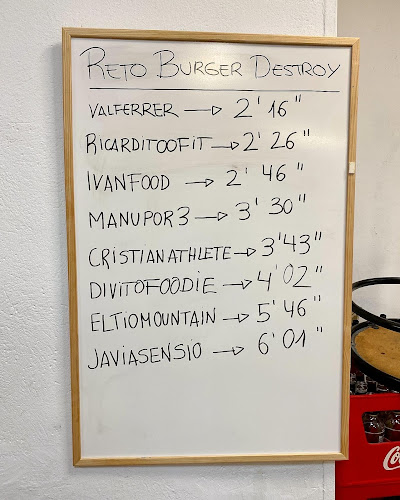 RETO BURGER DESTROY
VALFERRER → 2' 16"
RICARDITOOFIT → 2' 26"
IVANFOOD → 2' 46"
MANUPOR3 → 3' 30"
CRISTIANATHLETE → 3'43"
DIVITOFOODIE → 4'02"
ELTIOMOUNTAIN → 5' 46"
JAVIASENSIO → 6' 01"